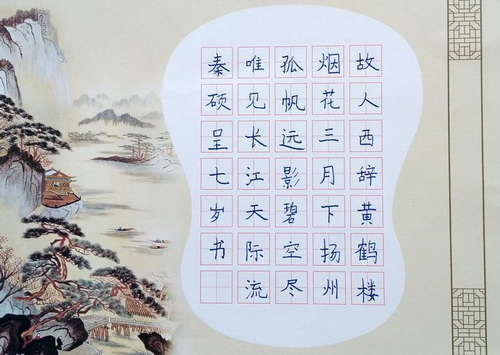 故人西辞黄鹤楼
烟花三月下扬州
孤帆远影碧空尽
唯见长江天际流
秦硕呈七岁书